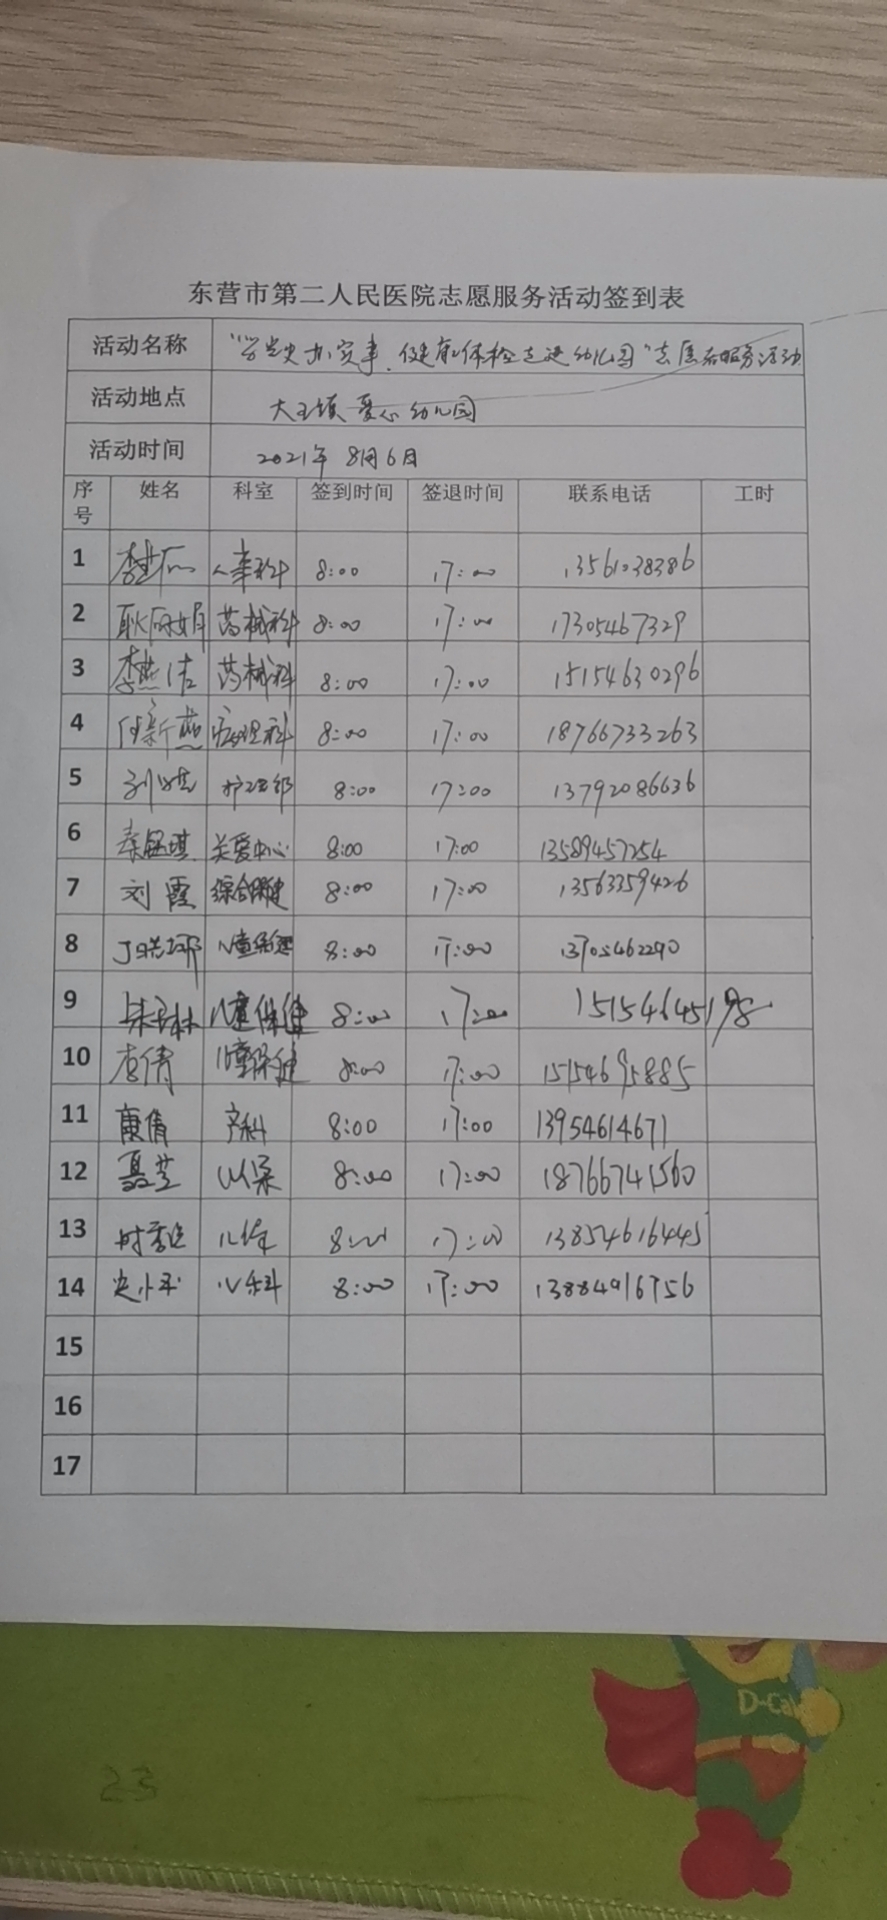 东营市第二人民医院志愿服务活动签到表
活动名称 "学党史办实事、健康体检走进幼儿园"志愿者服务活动
活动地点 大王镇爱心幼儿园
活动时间 2021年8月6日
序号 姓名 科室 签到时间 签退时间 联系电话 工时
1 人事科 8:00 17:00 13561038386
2 耿丽娟 药械科 8:00 17:00 17305467329
3 李燕洁 药械科 8:00 17:00 15154630296
4 何新燕 病理科 8:00 17:00 18766733263
5 护理部 8:00 17:00 13792086636
6 秦铭琪 关爱中心 8:00 17:00 13589457254
7 刘霞 综合保健 8:00 17:00 13563359426
8 儿童保健 8:00 17:00 13705462290
9 儿童保健 8:00 17:00 15154645198
10 李倩 儿童保健 8:00 17:00 15154695885
11 康倩 产科 8:00 17:00 13954614671
12 聂芝 儿保 8:00 17:00 18766741560
13 儿保 8:00 17:00 13854616445
14 儿科 8:00 17:00 13884916756
15
16
17
D-Cal
23